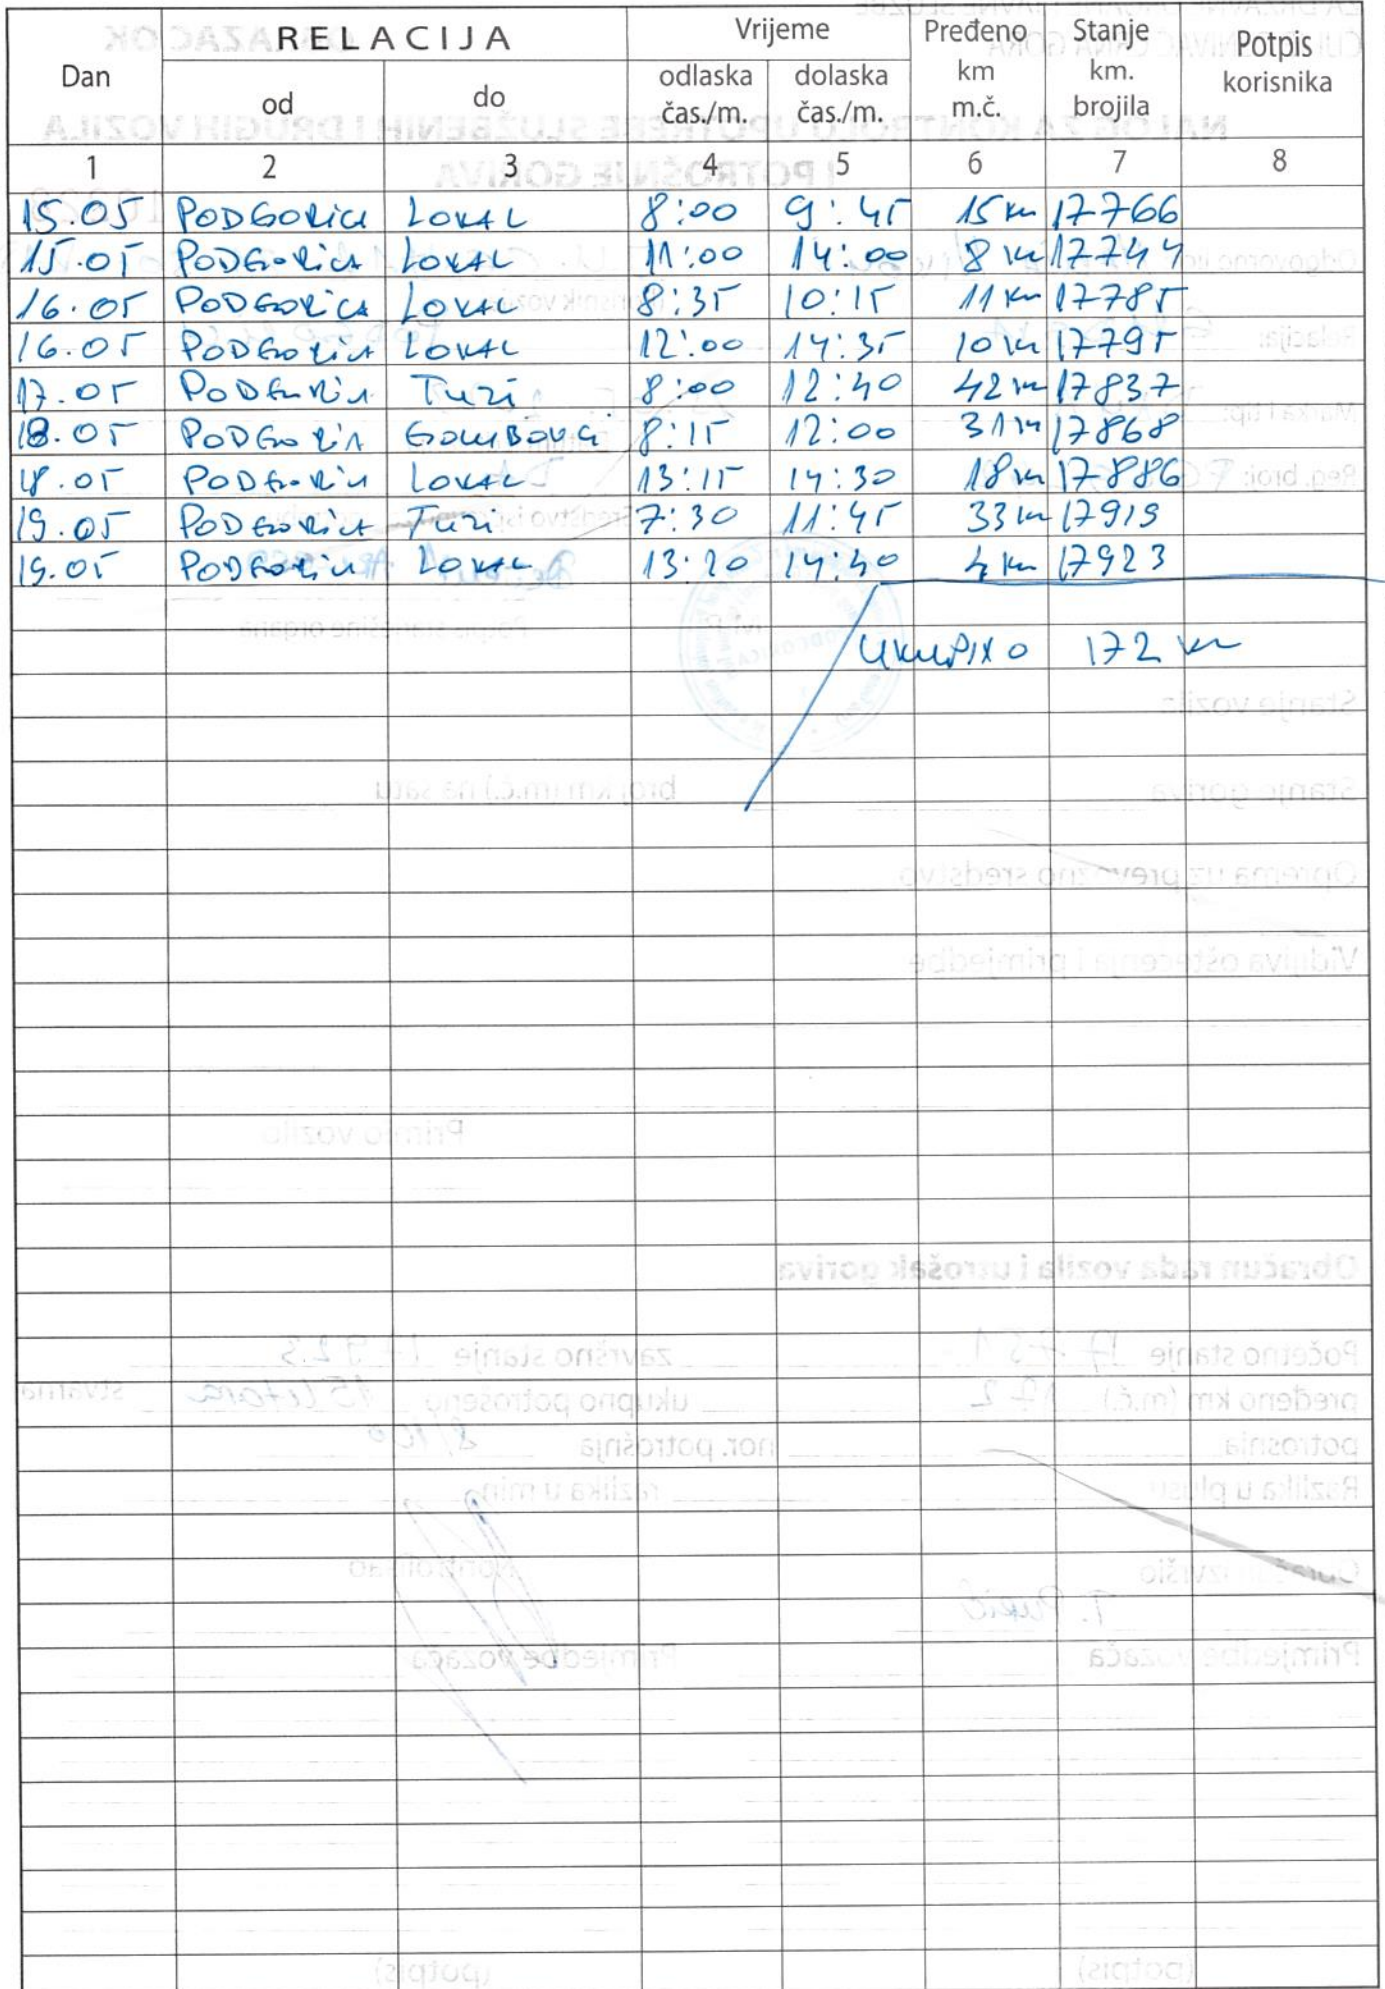 RELACIJA Vrijeme Pređeno Stanje Potpis
Dan od do odlaska dolaska km km. korisnika
čas./m. čas./m. m.č. brojila
1 2 3 4 5 6 7 8
15.05 PODGORICA LOKAL 8:00 9:45 15 km 17766
15.05 PODGORICA LOKAL 11:00 14:00 8 km 17744
16.05 PODGORICA LOKAL 8:35 10:15 11 km 17785
16.05 PODGORICA LOKAL 12:00 14:35 10 km 17795
17.05 PODGORICA Tuzi 8:00 12:40 42 km 17837
18.05 PODGORICA GOLUBOVCI 8:15 12:00 31 km 17868
18.05 PODGORICA LOKAL 13:15 14:30 18 km 17886
19.05 PODGORICA Tuzi 7:30 11:45 33 km 17919
19.05 PODGORICA LOKAL 13:20 14:40 4 km 17923
UKUPNO 172 km